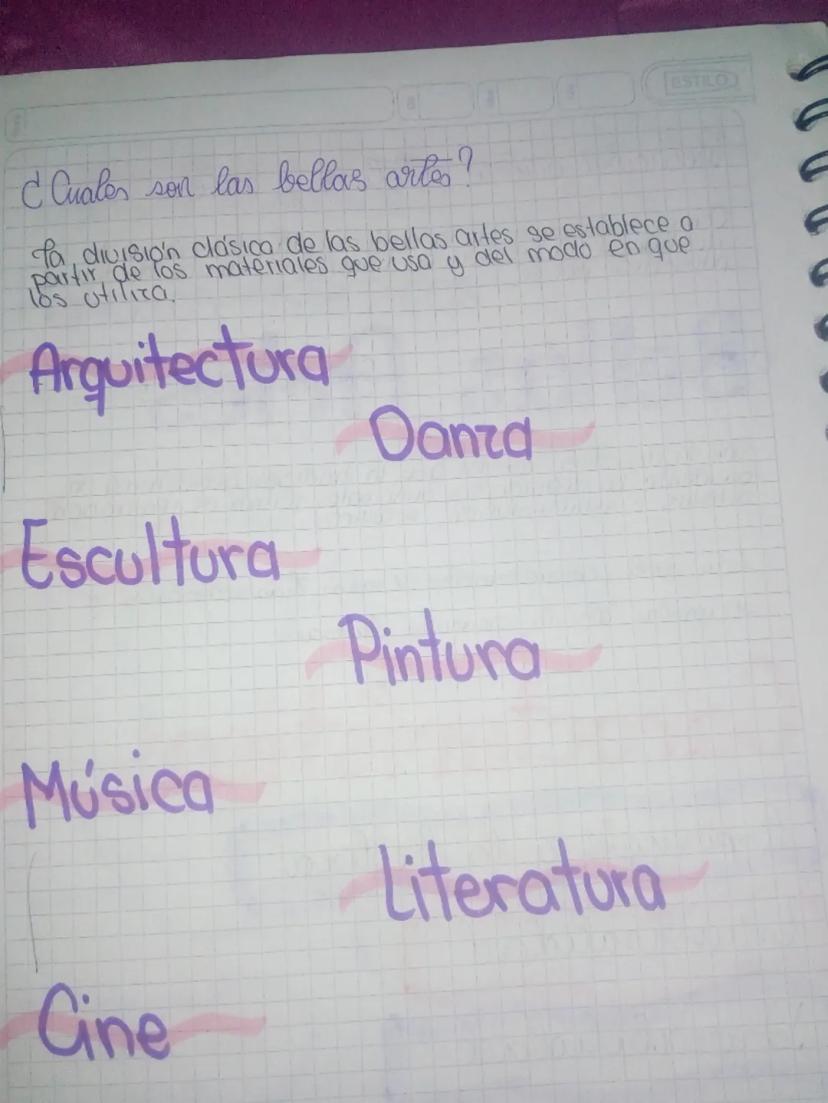 ESTILO
¿Cuales son las bellas artes?
la división clásica de las bellas artes se establece a
partir de los materiales que usa y del modo en que
los utiliza.
Arquitectura
Danza
Escultura
Pintura
Música
Literatura
Cine